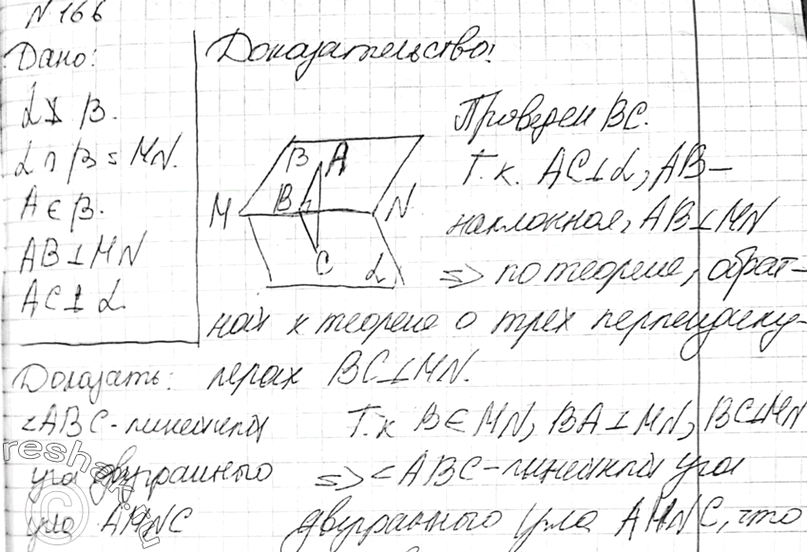 N 166
Дано:
α ⊥̸ β.
α ∩ β = MN.
A ∈ β.
AB ⊥ MN
AC ⊥ α
Доказать:
∠ABC - линейный
угол двугранного
угла AMNC
Доказательство:
B A
M B N
C α
Проведем BC.
Т.к. AC⊥α, AB –
наклонная, AB⊥MN
=> по теореме, обрат-
ной к теореме о трех перпендику-
лярах BC⊥MN.
Т.к B∈MN, BA⊥MN, BC⊥MN
=> ∠ABC - линейный угол
двугранного угла AMNC, что
reshak.ru
©